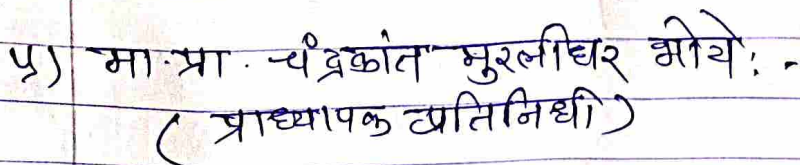 ५) मा.प्रा. चंद्रकांत मुरलीधर भोये: -
( प्राध्यापक प्रतिनिधी )